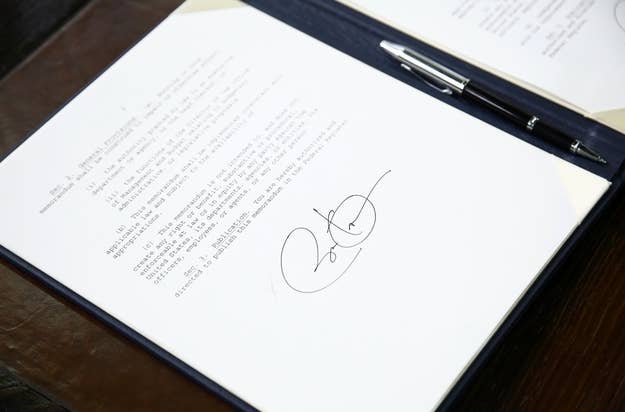 Sec. 2. General Provisions. (a) Nothing in this
memorandum shall be construed to impair or otherwise affect:
(i) the authority granted by law to an
department or agency, or the head thereof; or
(ii) the functions of the Director of the Office
of Management and Budget relating to budgetary,
administrative, or legislative proposals.
(b) This memorandum shall be implemented consistent with
applicable law and subject to the availability of
appropriations.
(c) This memorandum is not intended to, and does not,
create any right or benefit, substantive or procedural,
enforceable at law or in equity by any party against the
United States, its departments, agencies, or entities, its
officers, employees, or agents, or any other person.
Sec. 3. Publication. You are hereby authorized and
directed to publish this memorandum in the Federal Register.